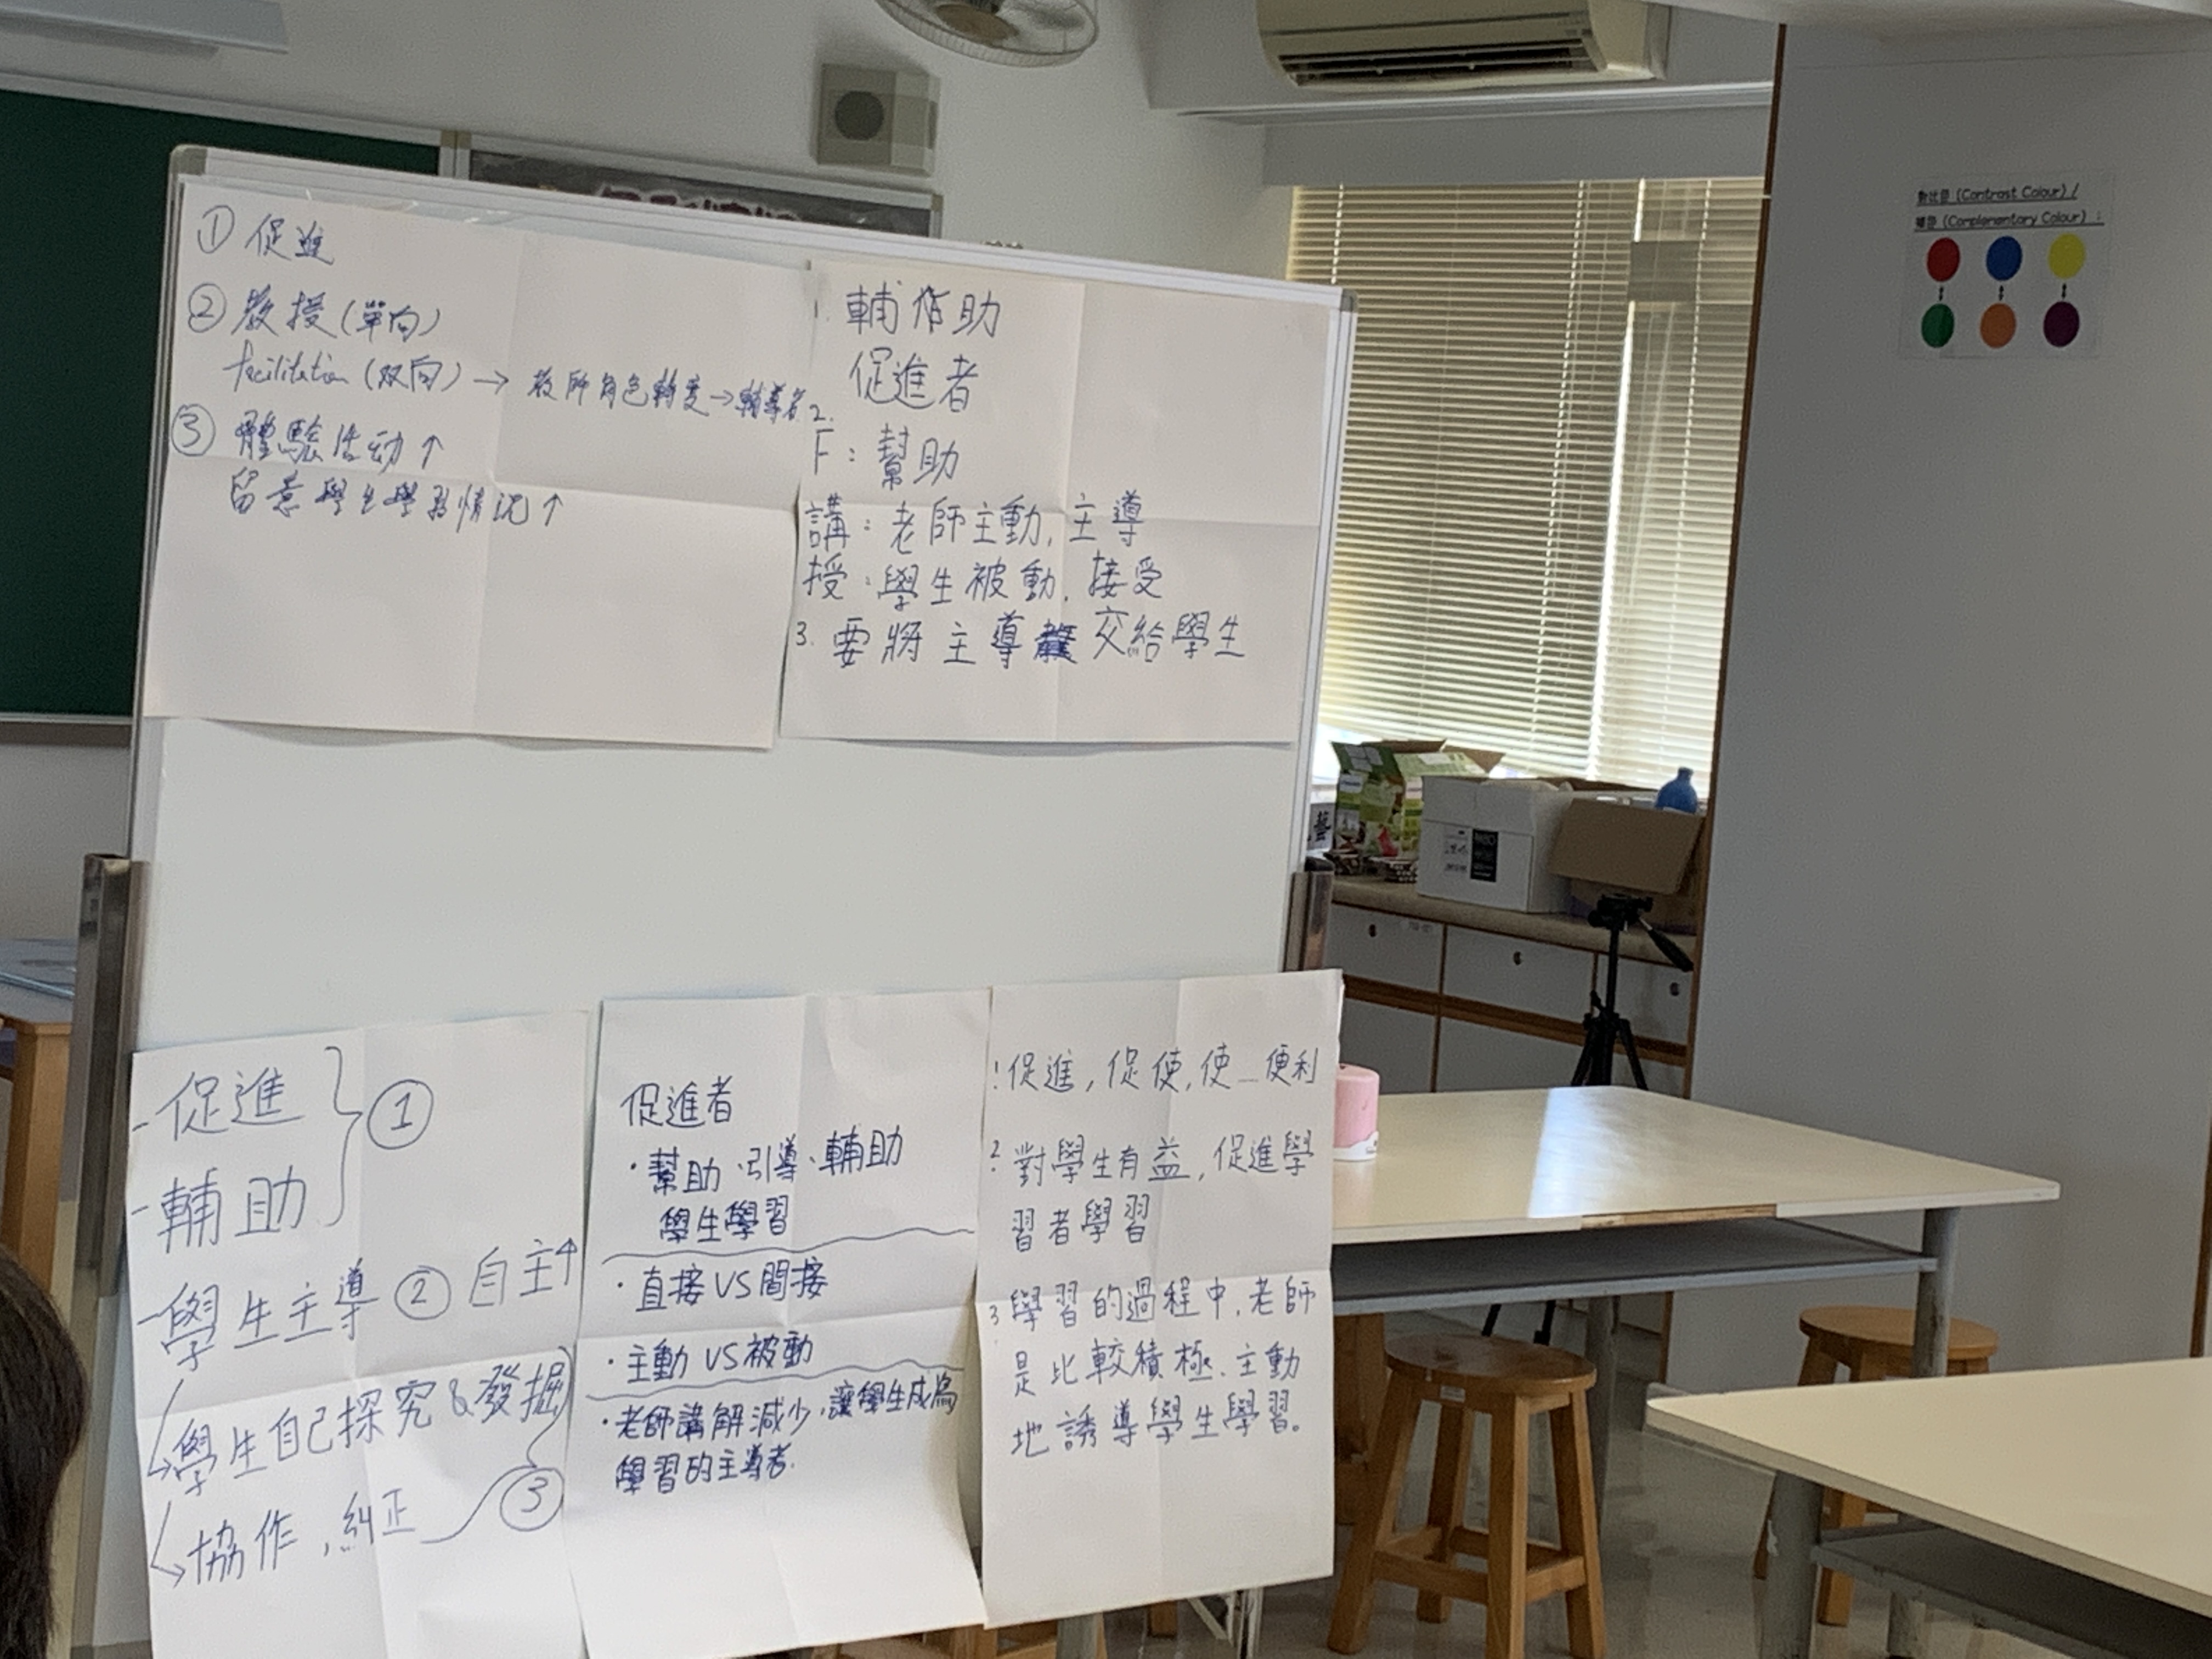 ① 促進
② 教授(單向)
facilitation (双向) → 教師角色轉變→輔導者
③ 體驗活动↑
留意學生學習情況↑
1. 輔助
促進者
2.
F：幫助
講：老師主動，主導
授：學生被動，接受
3. 要將主導權交給學生
-促進
①
-輔助
-學生主導 ② 自主↑
學生自己探究&發掘
協作，糾正 ③
促進者
·幫助、引導、輔助
學生學習
·直接VS間接
·主動VS被動
·老師講解減少，讓學生成為
學習的主導者.
1. 促進，促使，使…便利
2. 對學生有益，促進學
習者學習
3. 學習的過程中，老師
是比較積極、主動
地誘導學生學習。
對比色 (Contrast Colour) /
補色 (Complementary Colour) ：